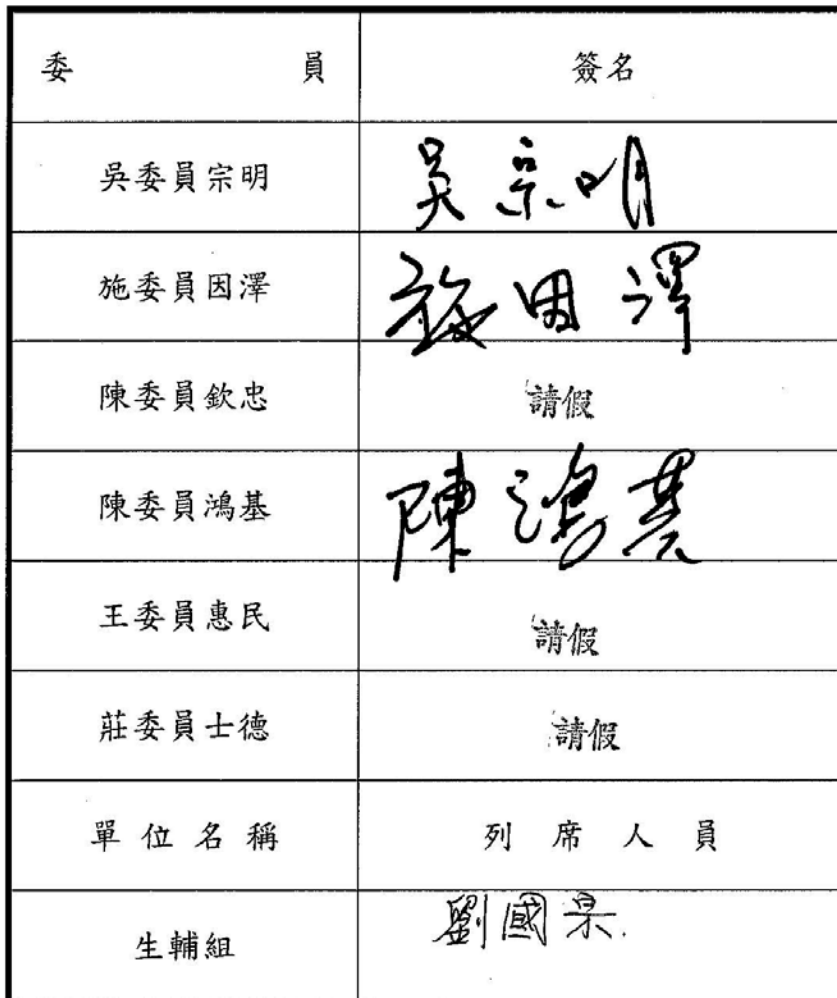 委員 簽名
吳委員宗明 吳宗明
施委員因澤 施因澤
陳委員欽忠 請假
陳委員鴻基 陳鴻基
王委員惠民 請假
莊委員士德 請假
單位名稱 列席人員
生輔組 劉國杲